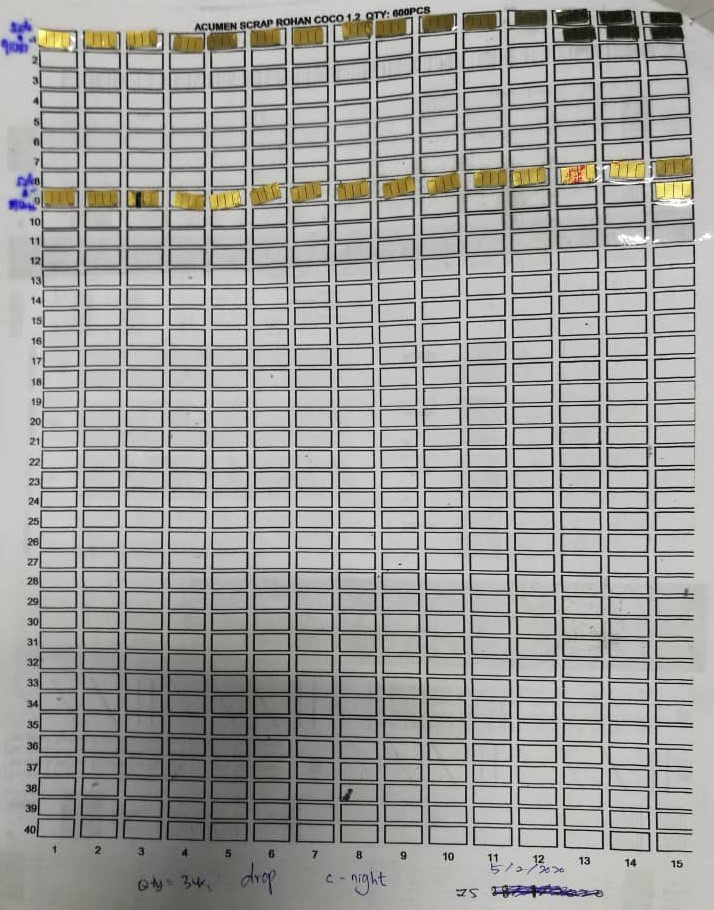 ACUMEN SCRAP ROHAN COCO 1.2 QTY: 600PCS
2
3
4
5
6
7
8
9
10
11
12
13
14
15
16
17
18
19
20
21
22
23
24
25
26
27
28
29
30
31
32
33
34
35
36
37
38
39
40
1 2 3 4 5 6 7 8 9 10 11 12 13 14 15
5/2/2020
Qty = 34 drop c-night